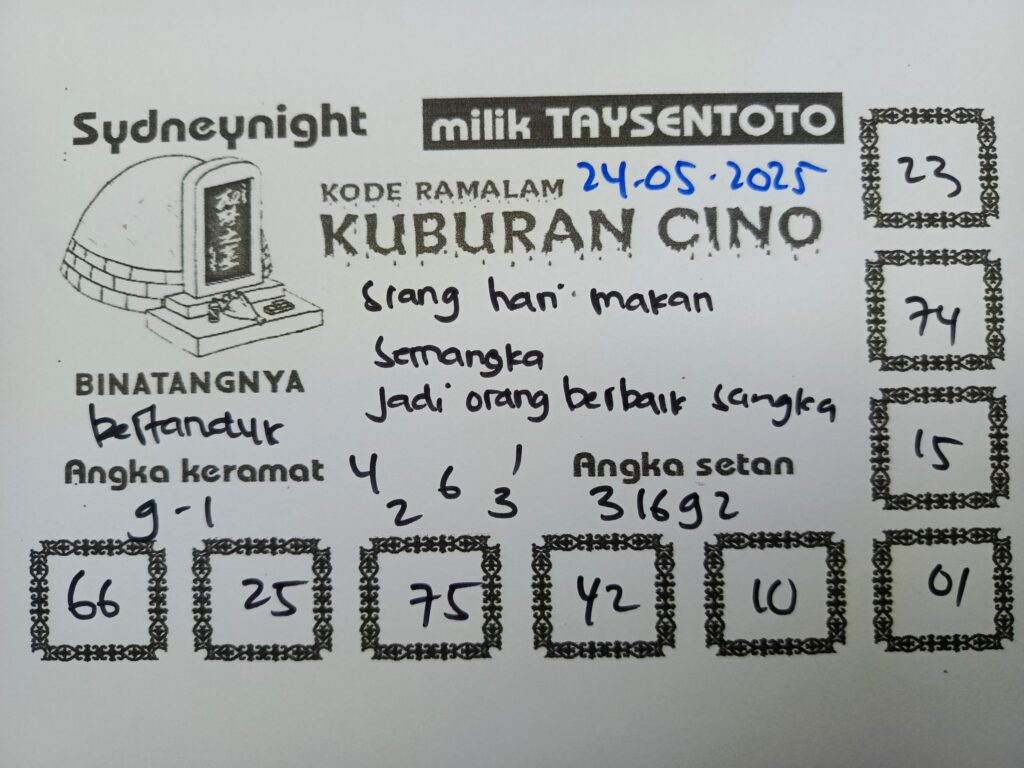 Sydneynight
milik TAYSENTOTO
KODE RAMALAM 24.05.2025
KUBURAN CINO
Siang hari makan
Semangka
Jadi orang berbaik sangka
BINATANGNYA
bertanduk
Angka keramat
9-1
4 6 1
2 3
Angka setan
31692
23
74
15
01
66 25 75 42 10